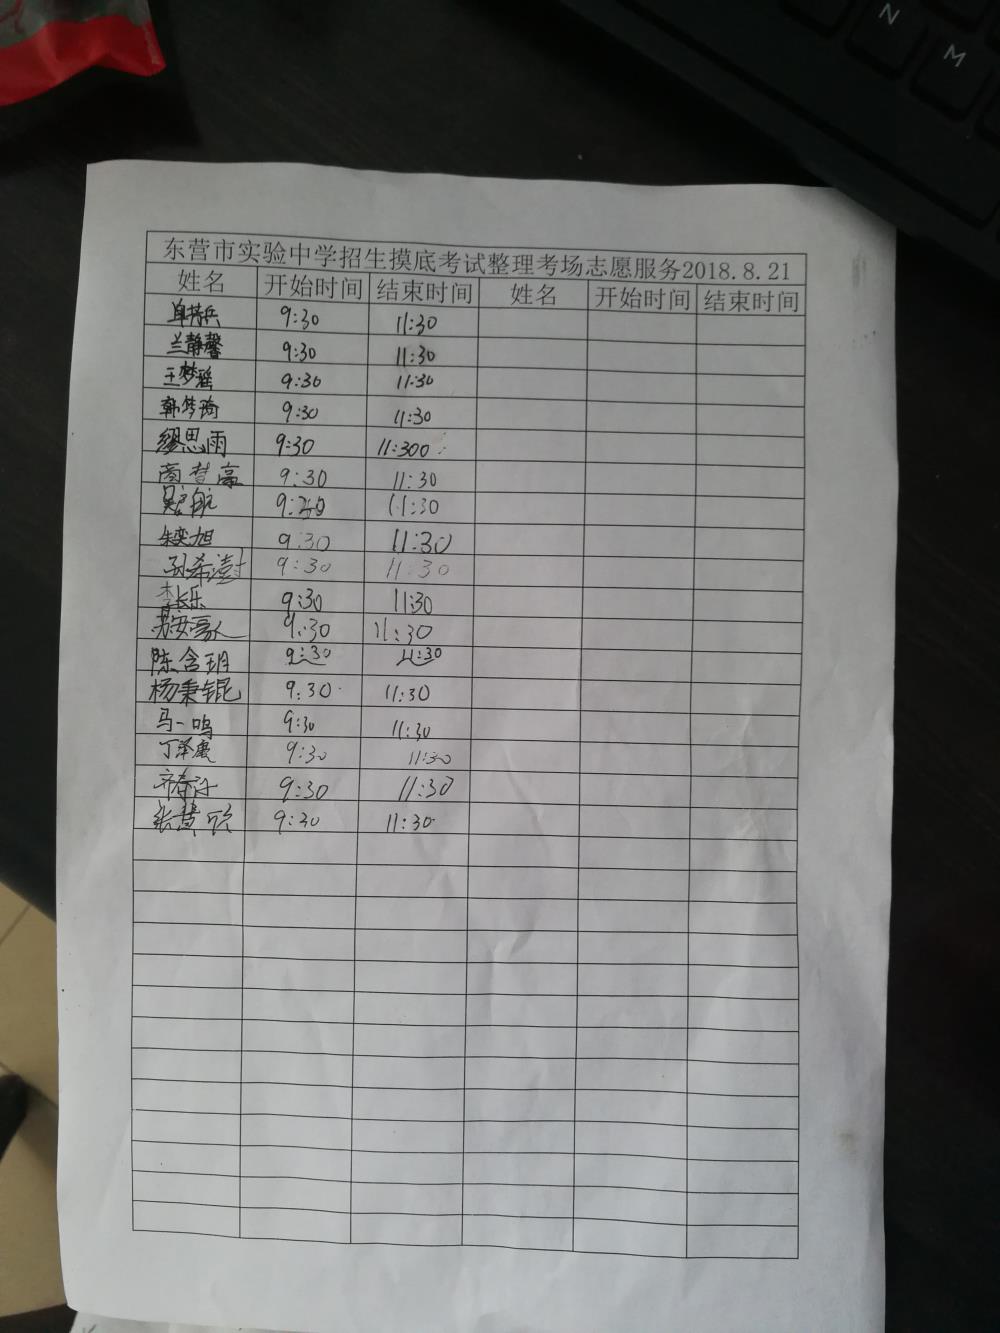 N
M
东营市实验中学招生摸底考试整理考场志愿服务2018.8.21
姓名 开始时间 结束时间 姓名 开始时间 结束时间
9:30 11:30
兰静馨 9:30 11:30
王梦瑶 9:30 11:30
韩梦琦 9:30 11:30
缪思雨 9:30 11:300
9:30 11:30
11:30
朱奕旭 9:30 11:30
孙希澍 9:30 11:30
李长乐 9:30 11:30
9:30 11:30
陈含玥 9:30 11:30
杨秉锟 9:30 11:30
马一鸣 9:30 11:30
丁泽康 9:30 11:30
9:30 11:30
张慧 9:30 11:30